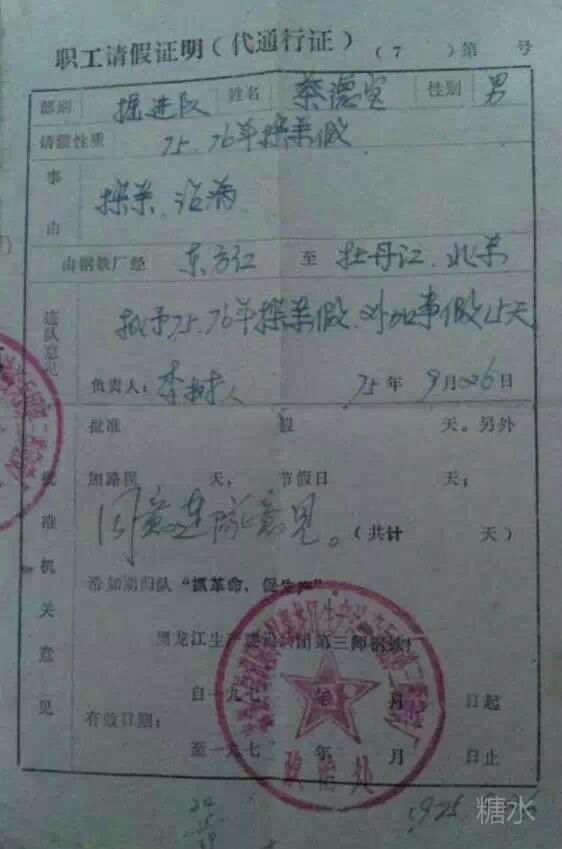 职工请假证明(代通行证) (7 )第 号
部别 掘进队 姓名 蔡德宝 性别 男
请假性质 75.76年探亲假
事由 探亲、治病
由钢铁厂经 东方红 至 牡丹江、北京
连队意见 拟予75.76年探亲假、外加事假15天
负责人:李树人 75年9月26日
批准机关意见
批准 假 天。另外
加路程 天,节假日 天;
同意连队意见。(共计 天)
希如期归队“抓革命,促生产”。
黑龙江生产建设兵团第三师钢铁厂
有效日期:
自一九七 年 月 日起
至一九七 年 月 日止
政治处
24
25
29
糖水